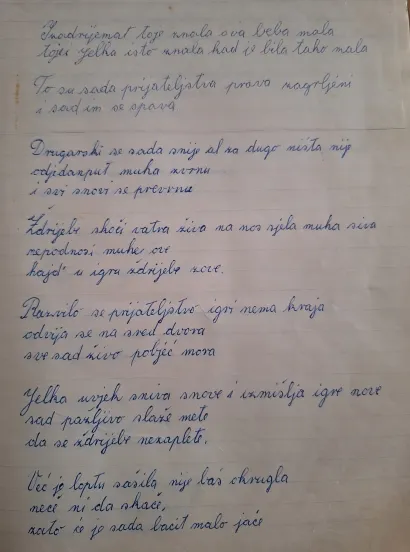 Izadrijemat toje znala sva beba mala
tojei Jelka isto znala kad je bila tako mala
To su sada prijateljstva prava zagrljeni
i sad im se spava
Drugarski se sada snije al za dugo ništa nije
odjidanput muha zvrnu
i svi snovi se prevrnu
Ždrijebe skoči vatra živa na nos sjela muha siva
nepodnosi muhe ove
hajd' u igru ždrijebe zove.
Razvilo se prijateljstvo igri nema kraja
odvija se na sred dvora
sve sad živo pobjeć mora
Jelka uvjek sniva snove i izmišlja igre nove
sad pažljivo slaže mete
da se ždrijebe nezaplete.
Već je loptu sašila nije baš okrugla
neće ni da skače,
zato će je sada bacit malo jače